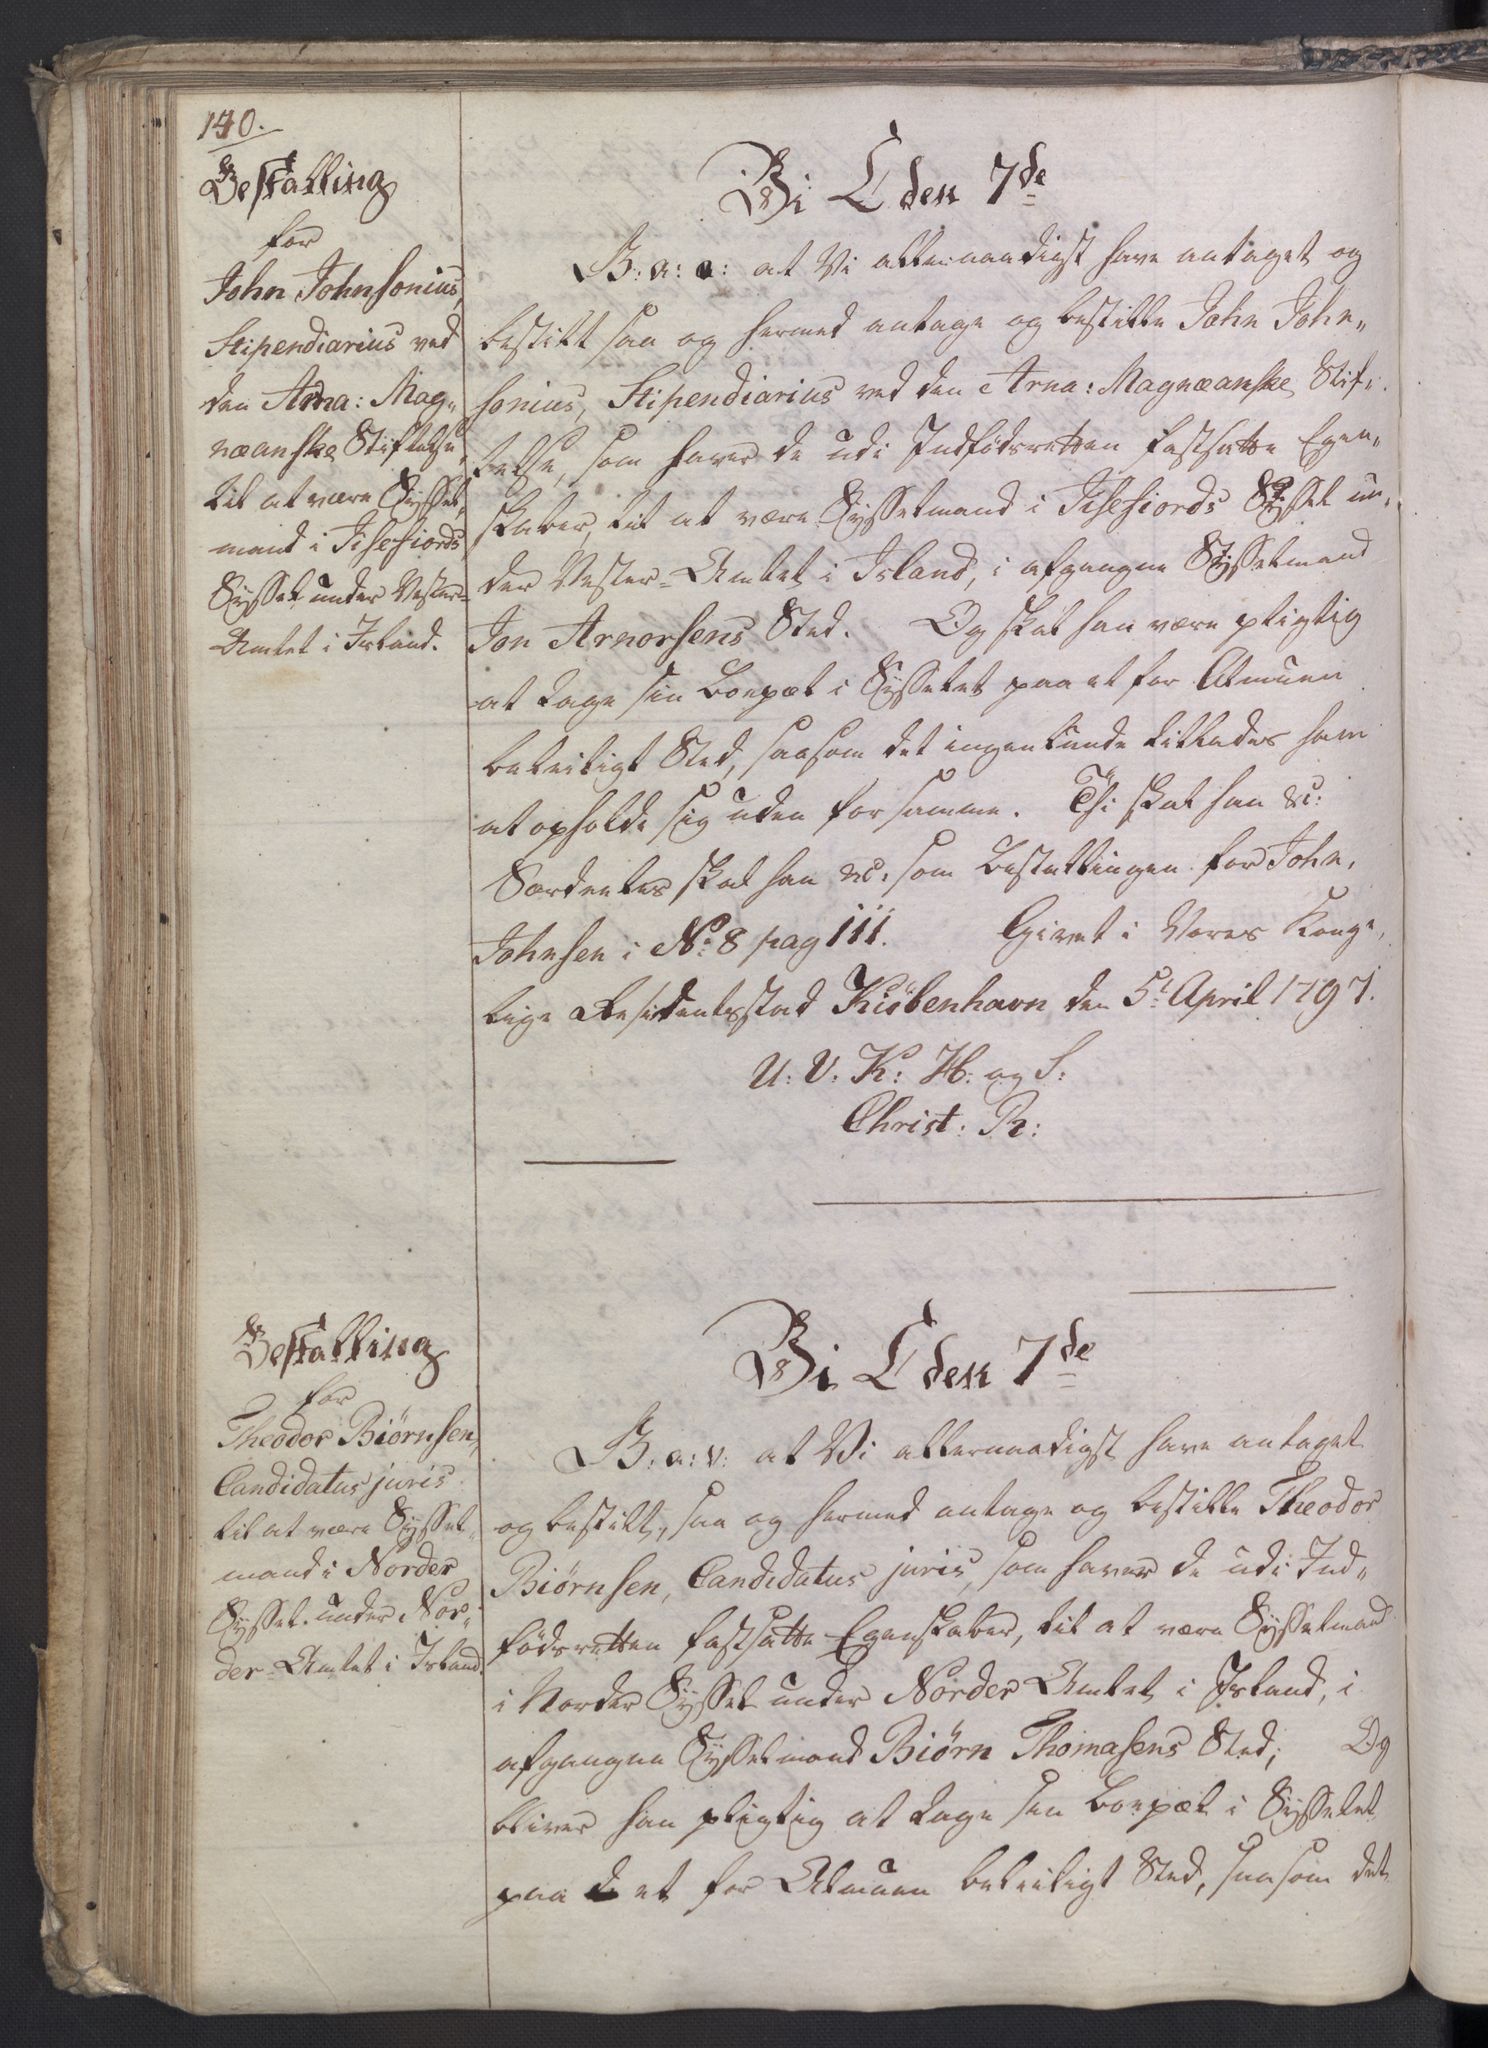 140.
Bestalling
for
John Johnsonius,
Stipendiarius ved
den Arna: Mag„
næanske Stiftelse,
til at være Syssel„
mand i Isefiords
Syssel under Vester=
Amtet i Island.
Vi C den 7de
B: a: v: at Vi allernaadigst have antaget og
bestilt saa og hermed antage og bestille John John„
sonius, Stipendiarius ved den Arna: Magnæanske Stif„
telse, som haver de udi Indfødsretten fastsatte Egen„
skaber, til at være Sysselmand i Isefiords Syssel un„
der Vester=Amtet i Island, i afgangne Sysselmand
Jon Arnorsens Sted. Og skal han være pligtig
at tage sin Boepæl i Sysselet paa et for Almuen
beleiligt Sted, saasom det ingenlunde tillades ham
at opholde sig uden for samme. Thi skal han &c:
Særdeeles skal han &c: som Bestallingen for John
Johnsen i No: 8 pag 111. Givet i Vores Konge„
lige Residentsstad Kiöbenhavn den 5t April 1797.
U: V: K: H: og S:
Christ: R:
Bestalling
for
Theodor Biørnsen,
Candidatus juris
til at være Syssel„
mand i Norder
Syssel under Nor„
der=Amtet i Island.
Vi C den 7de
B: a: v: at Vi allernaadigst have antaget
og bestilt, saa og hermed antage og bestille Theodor
Biørnsen, Candidatus juris, som haver de udi Ind„
fødsretten fastsatte Egenskaber, til at være Sysselmand
i Norder Syssel under Norder Amtet i Island, i
afgangne Sysselmand Biørn Thomasens Sted; Og
bliver han pligtig at tage sin Boepæl i Sysselet
paa et for Almuen beleiligt Sted, saasom det